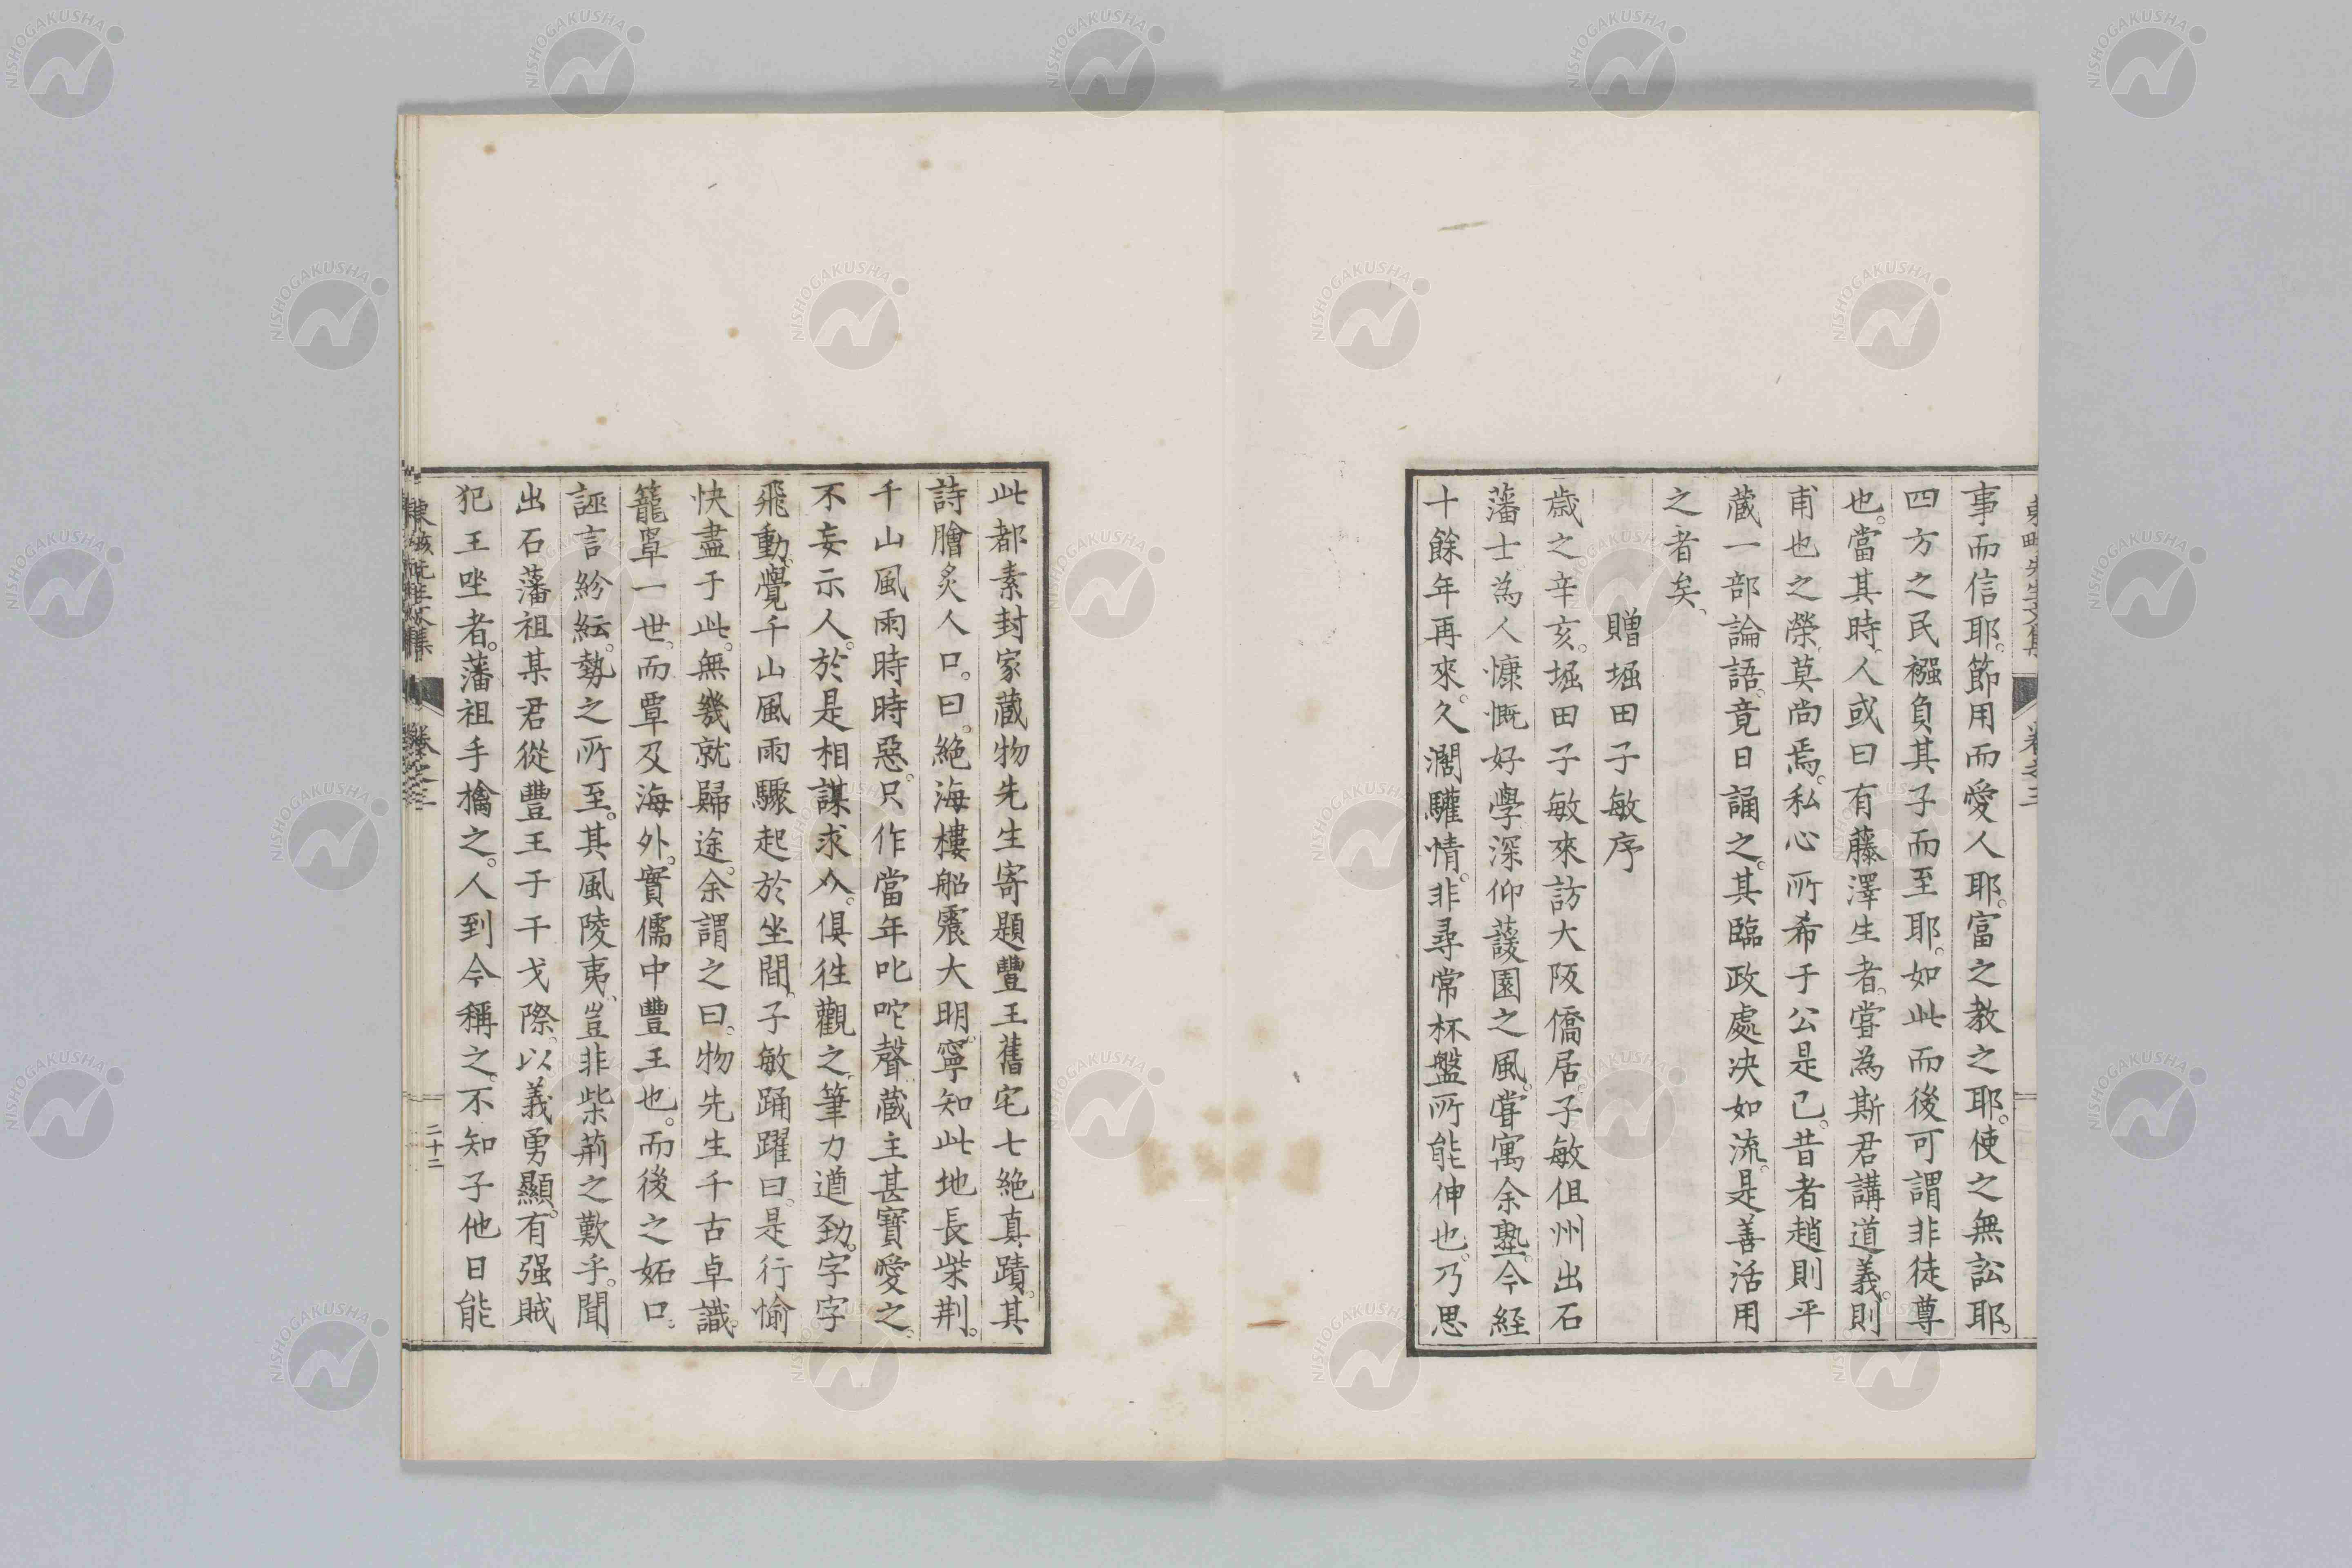 事而信耶。節用而愛人耶。富之教之耶。使之無訟耶。
四方之民襁負其子而至耶。如此而後可謂非徒尊
也。當其時、人或曰有藤澤生者。嘗為斯君講道義。則
甫也之榮、莫尚焉。私心所希于公是已。昔者趙則平
蔵一部論語。竟日誦之。其臨政處决如流。是善活用
之者矣、
贈堀田子敏序
歳之辛亥。堀田子敏來訪大阪僑居。子敏但州出石
藩士為人慷慨好學深仰蘐園之風。嘗寓余塾。今経
十餘年再來。久濶驩情。非尋常杯盤所能伸也。乃思
此都素封家蔵物先生寄題豐王舊宅七絶真蹟。其
詩膾炙人口。曰。絶海樓船震大明。寧知此地長柴荆。
千山風雨時時惡。只作當年叱咤聲蔵主甚寶愛之。
不妄示人。於是相謀求介。俱徃觀之、筆力遒勁。字字
飛動。覺千山風雨驟起於坐間。子敏踊躍曰。是行愉
快盡于此。無幾就歸途。余謂之曰。物先生千古卓識。
籠罩一世。而覃及海外。實儒中豐王也。而後之妬口。
誣言紛紜。勢之所至。其風陵夷、豈非柴荊之歎乎。聞
出石藩祖某君從豐王于干戈際。以義勇顯。有强賊
犯王坐者。藩祖手擒之。人到今稱之。不知子他日能
卷之三
二十二
NISHOGAKUSHA